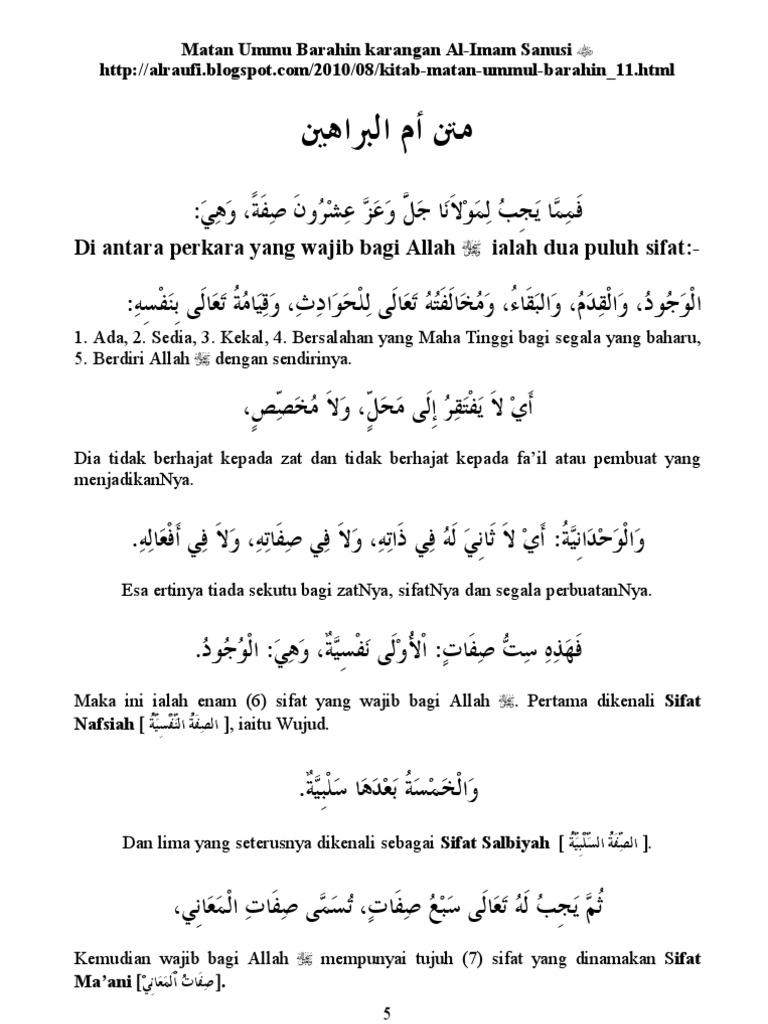 Matan Ummu Barahin karangan Al-Imam Sanusi
http://alraufi.blogspot.com/2010/08/kitab-matan-ummul-barahin_11.html
متن أم البراهين
فَمِمَّا يَجِبُ لِمَوْلاَنَا جَلَّ وَعَزَّ عِشْرُونَ صِفَةً، وَهِيَ:
Di antara perkara yang wajib bagi Allah ﷻ ialah dua puluh sifat:-
الْوَجُودُ، وَالْقِدَمُ، وَالبَقَاءُ، وَمُخَالَفَتُهُ تَعَالَى لِلْحَوَادِثِ، وَقِيَامُهُ تَعَالَى بِنَفْسِهِ:
1. Ada, 2. Sedia, 3. Kekal, 4. Bersalahan yang Maha Tinggi bagi segala yang baharu,
5. Berdiri Allah ﷻ dengan sendirinya.
أَيْ لاَ يَفْتَقِرُ إِلَى مَحَلٍّ، وَلاَ مُخَصِّصٍ،
Dia tidak berhajat kepada zat dan tidak berhajat kepada fa’il atau pembuat yang
menjadikanNya.
وَالْوَحْدَانِيَّةُ: أَيْ لاَ ثَانِيَ لَهُ فِي ذَاتِهِ، وَلاَ فِي صِفَاتِهِ، وَلاَ فِي أَفْعَالِهِ.
Esa ertinya tiada sekutu bagi zatNya, sifatNya dan segala perbuatanNya.
فَهَذِهِ سِتُّ صِفَاتٍ: الْأُوْلَى نَفْسِيَّةٌ، وَهِيَ: الْوُجُودُ.
Maka ini ialah enam (6) sifat yang wajib bagi Allah ﷻ. Pertama dikenali Sifat
Nafsiah [ الصِفَةُ النَّفْسِيَّةُ ], iaitu Wujud.
وَالْخَمْسَةُ بَعْدَهَا سَلْبِيَّةٌ.
Dan lima yang seterusnya dikenali sebagai Sifat Salbiyah [ الصِّفَةُ السَّلْبِيَّةُ ].
ثُمَّ يَجِبُ لَهُ تَعَالَى سَبْعُ صِفَاتٍ، تُسَمَّى صِفَاتِ الْمَعَانِي،
Kemudian wajib bagi Allah ﷻ mempunyai tujuh (7) sifat yang dinamakan Sifat
Ma’ani [صِفَاتُ ٱلمَعَانِيْ].
5